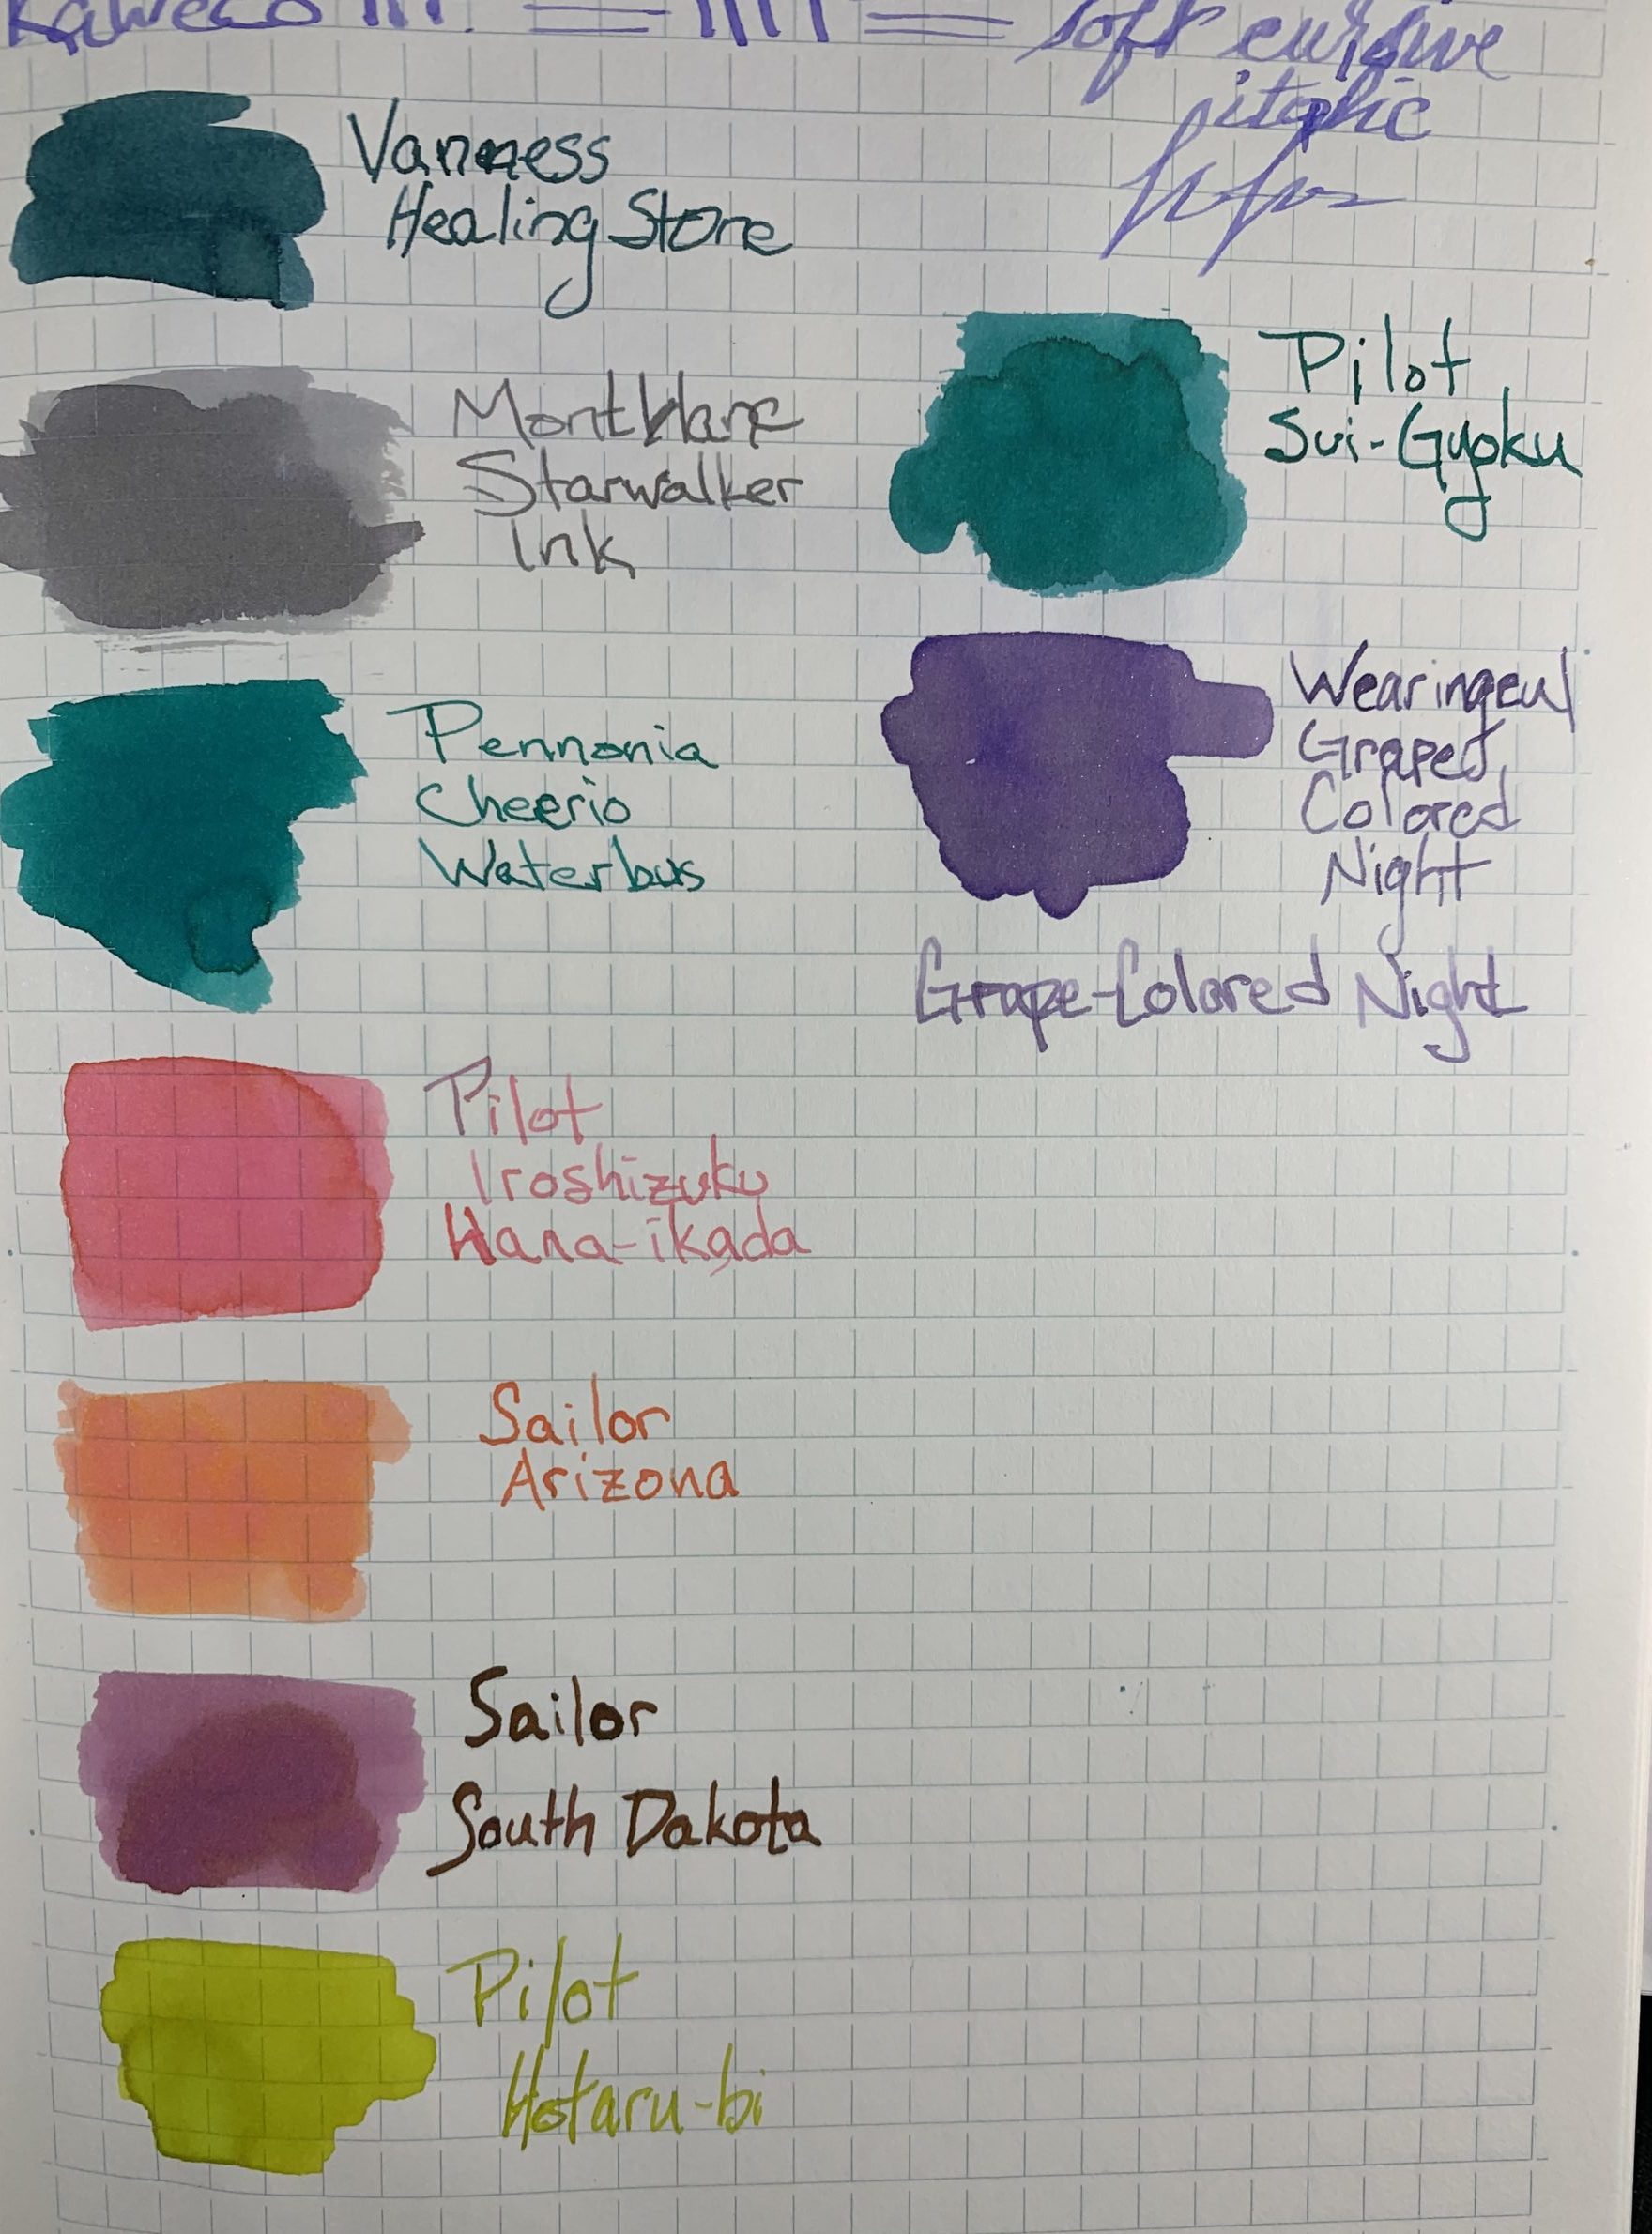 Kaweco
soft cursive
italic
Vanness
Healing Store
Montblanc
Starwalker
Ink
Pilot
Sui-Gyoku
Pennonia
Cheerio
Waterbus
Wearingeul
Graped
Colored
Night
Grape-Colored Night
Pilot
Iroshizuku
Hana-ikada
Sailor
Arizona
Sailor
South Dakota
Pilot
Hotaru-bi